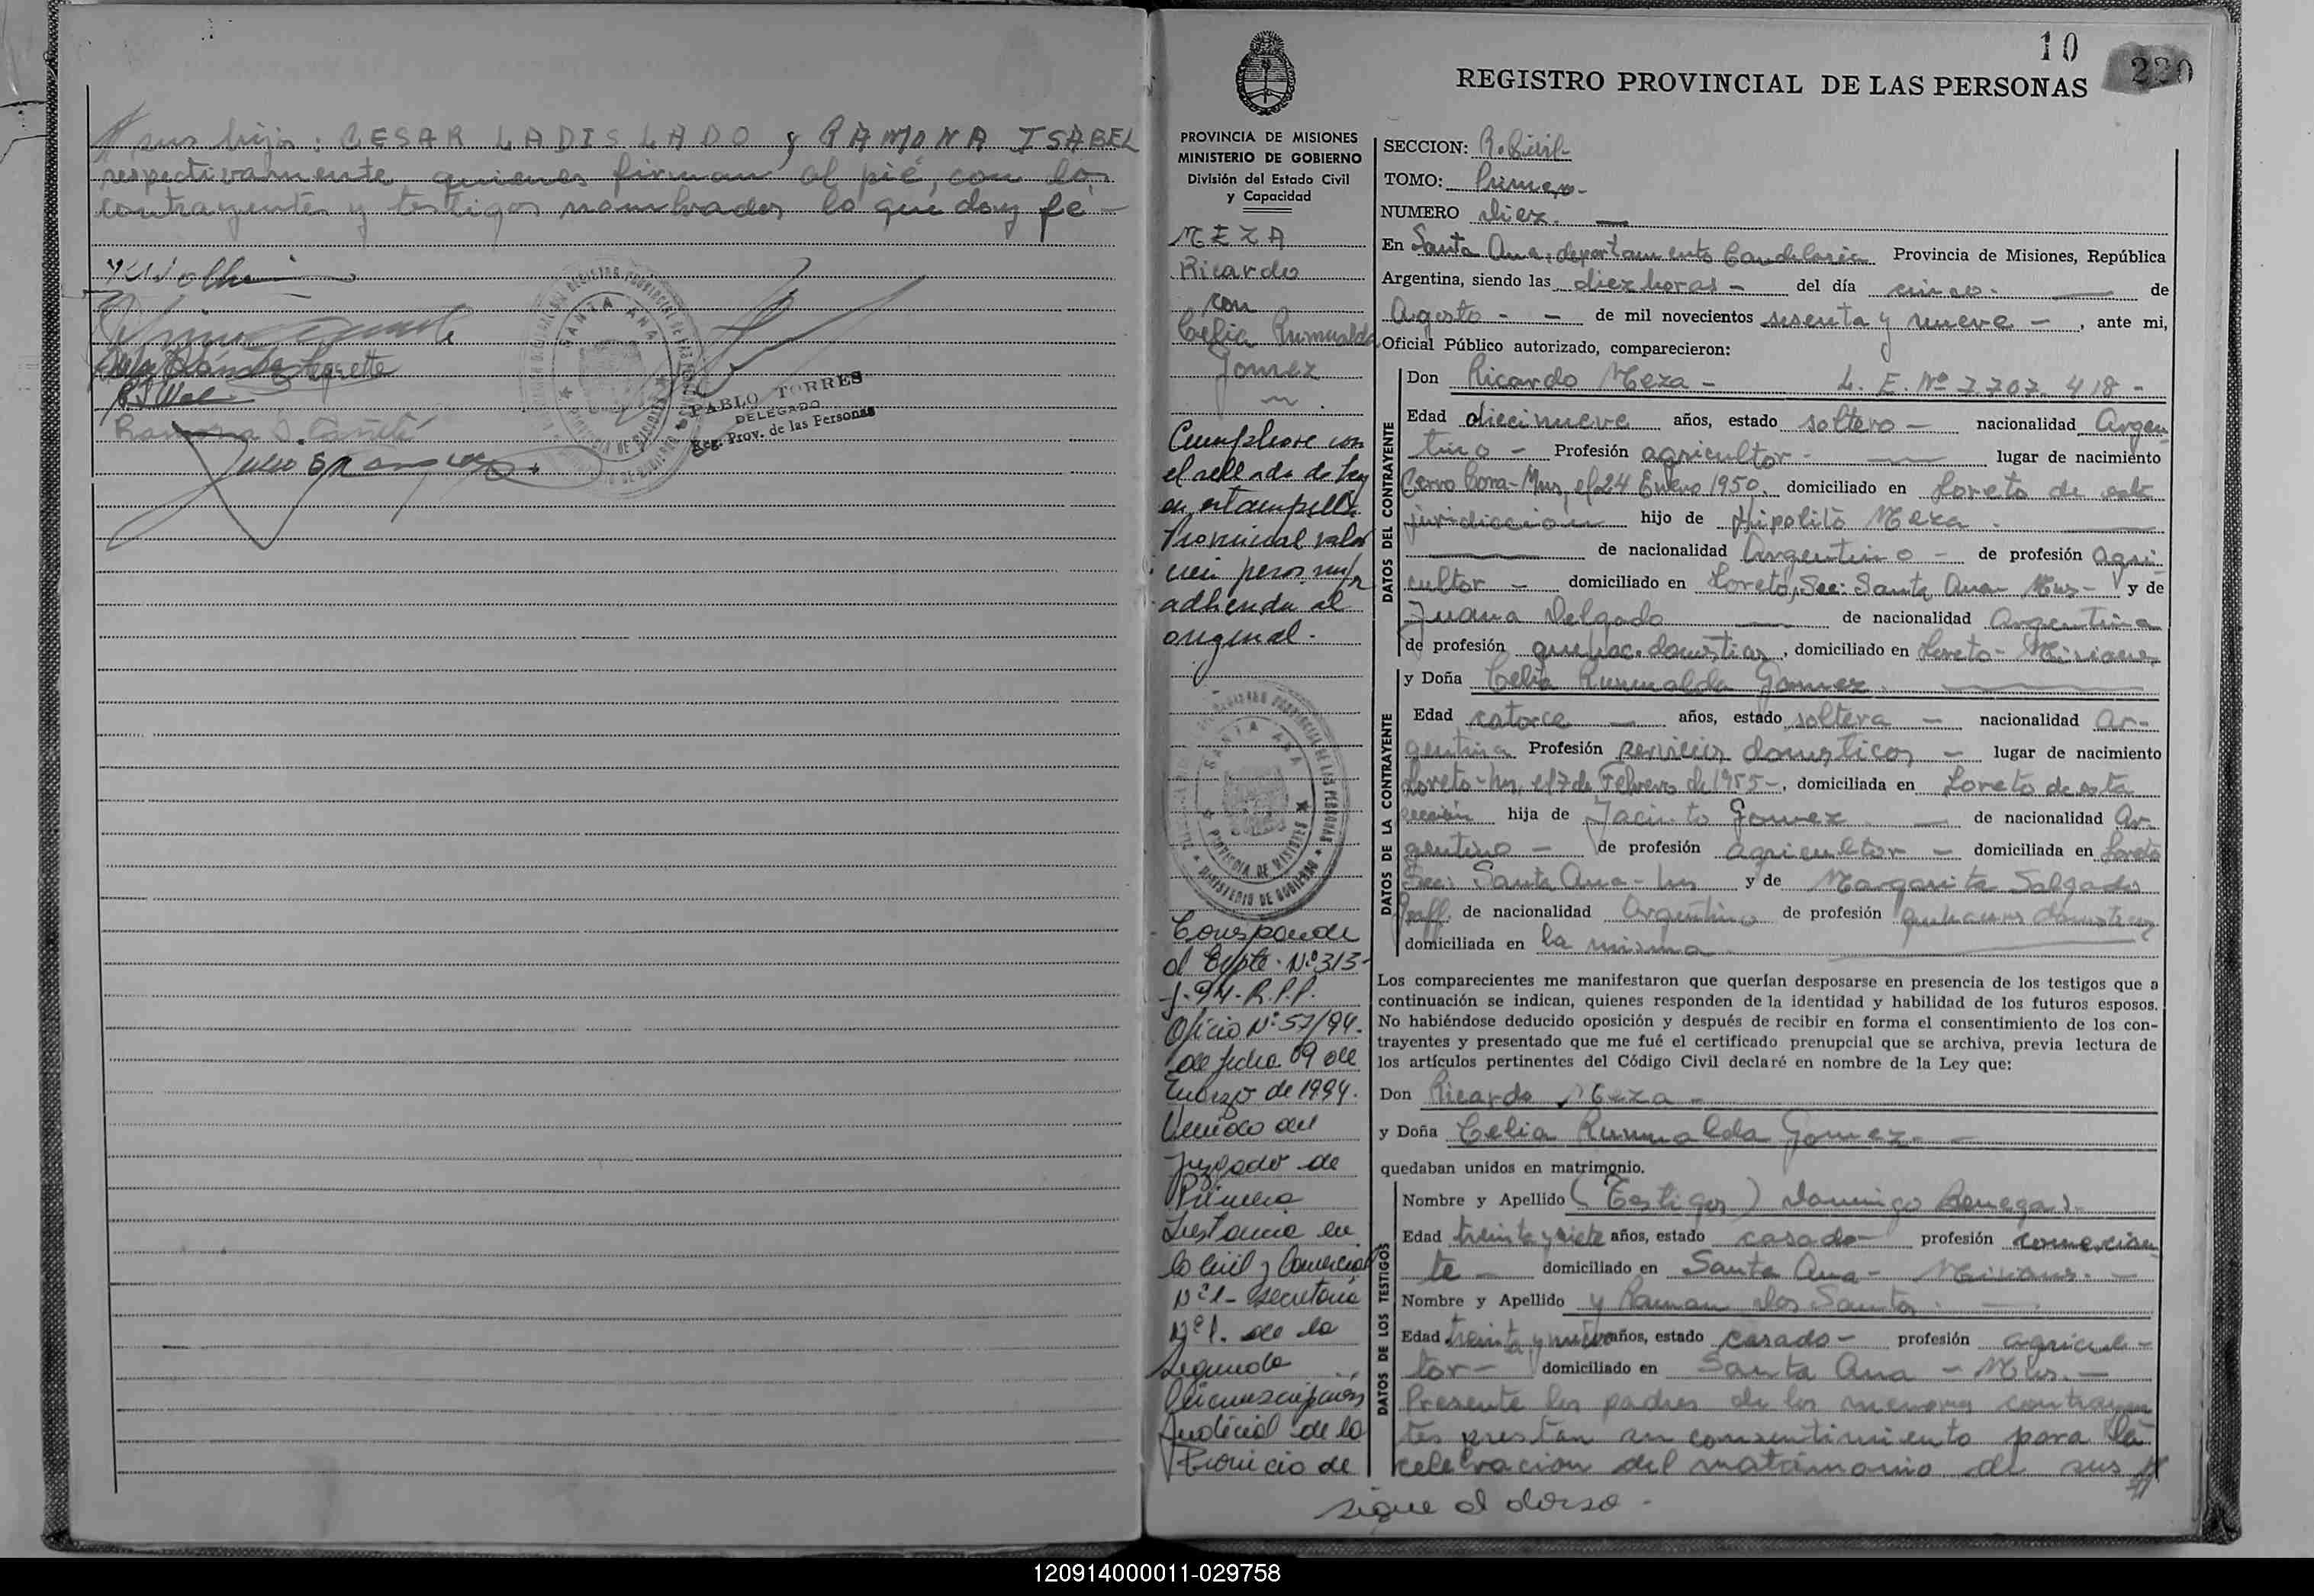 sus hijos: CESAR LADISLADO y RAMONA ISABEL
respectivamente quienes firman al pié, con los
contrayentes y testigos nombrados lo que doy fe -
SANTA ANA
PROVINCIA DE MISIONES
PABLO TORRES
DELEGADO
Reg. Prov. de las Personas
Ramona I. Cañete
10
220
REGISTRO PROVINCIAL DE LAS PERSONAS
PROVINCIA DE MISIONES
MINISTERIO DE GOBIERNO
División del Estado Civil
y Capacidad
MEZA
Ricardo
con
Celia Rumualda
Gomez
Cumplese con
el sellado de Ley
en estampilla
Provincial valor
cien pesos m/n
adherida al
original.
SANTA ANA
PROVINCIA DE MISIONES
MINISTERIO DE GOBIERNO
Corresponde
al Expte. Nº 313-
J-94-R.P.P.
Oficio Nº 57/94.
de fecha 09 de
Marzo de 1994.
Venido del
Juzgado de
Primera
Instancia en
lo Civil y Comercial
Nº 1- Secretaria
Nº 1. de la
Segunda
Circunscripción
Judicial de la
Provincia de
SECCION: R. Civil-
TOMO: Primero-
NUMERO diez. —
En Santa Ana, departamento Candelaria Provincia de Misiones, República
Argentina, siendo las diez horas - del día cinco. — de
Agosto - - de mil novecientos sesenta y nueve - , ante mi,
Oficial Público autorizado, comparecieron:
DATOS DEL CONTRAYENTE
Don Ricardo Meza - L. E. Nº 7.707.418 -
Edad diecinueve años, estado soltero - nacionalidad Argen
tino - Profesión agricultor - lugar de nacimiento
Cerro Cora-Mns, el 24 Enero 1950, domiciliado en Loreto de esta
juridiccion hijo de Hipolito Meza.
de nacionalidad Argentino - de profesión agri
cultor - domiciliado en Loreto, Sec: Santa Ana Mns- y de
Juana Delgado — de nacionalidad Argentina
de profesión quehac. domesticos, domiciliado en Loreto- Misiones
DATOS DE LA CONTRAYENTE
y Doña Celia Rumualda Gomez.
Edad catorce — años, estado soltera - nacionalidad Ar-
gentina Profesión servicios domesticos - lugar de nacimiento
Loreto-Mns, el 7 de Febrero de 1955-, domiciliada en Loreto de esta
sección hija de Jacinto Gomez — de nacionalidad Ar
gentino - de profesión agricultor - domiciliada en Loreto
Sec: Santa Ana - Mns y de Margarita Salgado
de nacionalidad Argentina de profesión quehaceres domesticos
domiciliada en la misma
Los comparecientes me manifestaron que querían desposarse en presencia de los testigos que a
continuación se indican, quienes responden de la identidad y habilidad de los futuros esposos.
No habiéndose deducido oposición y después de recibir en forma el consentimiento de los con-
trayentes y presentado que me fué el certificado prenupcial que se archiva, previa lectura de
los artículos pertinentes del Código Civil declaré en nombre de la Ley que:
Don Ricardo Meza -
y Doña Celia Rumualda Gomez. -
quedaban unidos en matrimonio.
DATOS DE LOS TESTIGOS
Nombre y Apellido (Testigos) Domingo Benegas.
Edad treinta y siete años, estado casado - profesión comercian
te - domiciliado en Santa Ana - Misiones. -
Nombre y Apellido y Raman dos Santos. -
Edad treinta y nueve años, estado casado - profesión agricul-
tor - domiciliado en Santa Ana - Mns. -
Presente los padres de los menores contrayen
tes prestan su consentimiento para la
celebracion del matrimonio de sus
sigue al dorso -
120914000011-029758